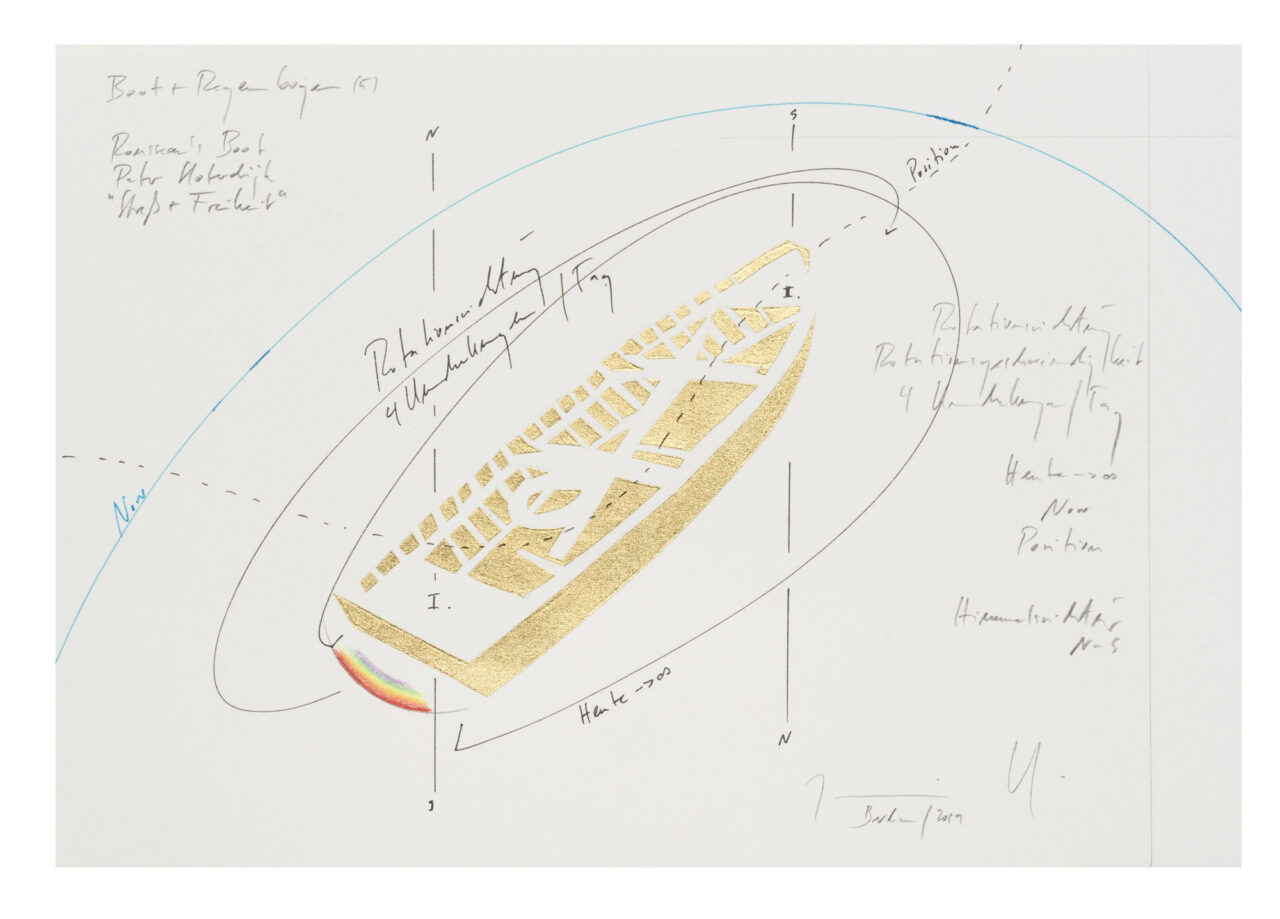 Boot + Regenbogen (5)
Rousseau's Boot
Peter Sloterdijk
"Streß + Freiheit"
N
S
Position
Rotationsrichtung
4 Umdrehungen / Tag
I.
Rotationsrichtung
Rotationsgeschwindigkeit
4 Umdrehungen / Tag
Heute -> ∞
Now
Position
Now
I.
Himmelsrichtung
N-S
Heute -> ∞
N
S
Berlin / 2019